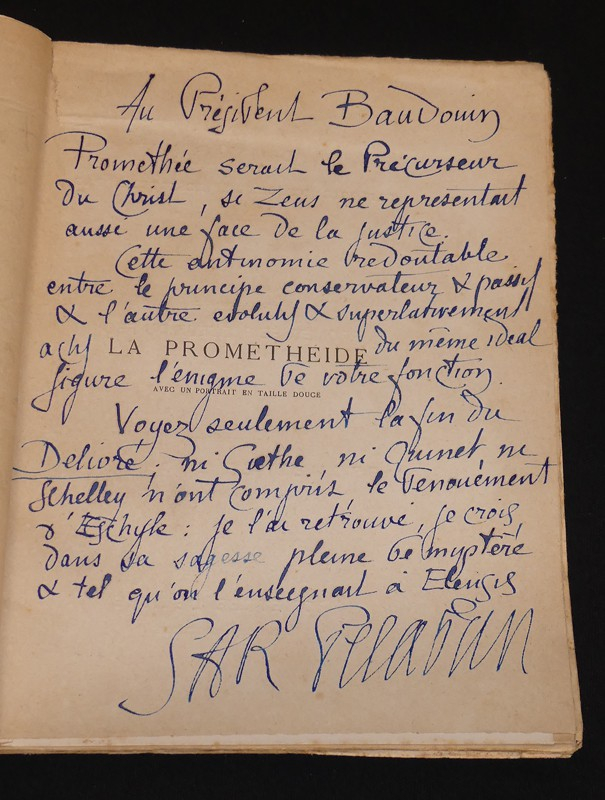 Au Président Baudouin
Promethée serait le Précurseur
du Christ, si Zeus ne representait
aussi une face de la justice.
Cette antinomie redoutable
entre le principe conservateur & passif
& l'autre evolutif & superlativement
actif LA PROMÉTHÉIDE du même idéal
figure l'énigme de votre fonction.
AVEC UN PORTRAIT EN TAILLE DOUCE
Voyez seulement la fin du
Delivré, ni Gœthe ni Quinet ni
Schelley n'ont compris le denouément
d'Eschyle : je l'ai retrouvé, je crois
dans sa sagesse pleine de mystère
& tel qu'on l'enseegnait à Eleusis
SAR Peladan